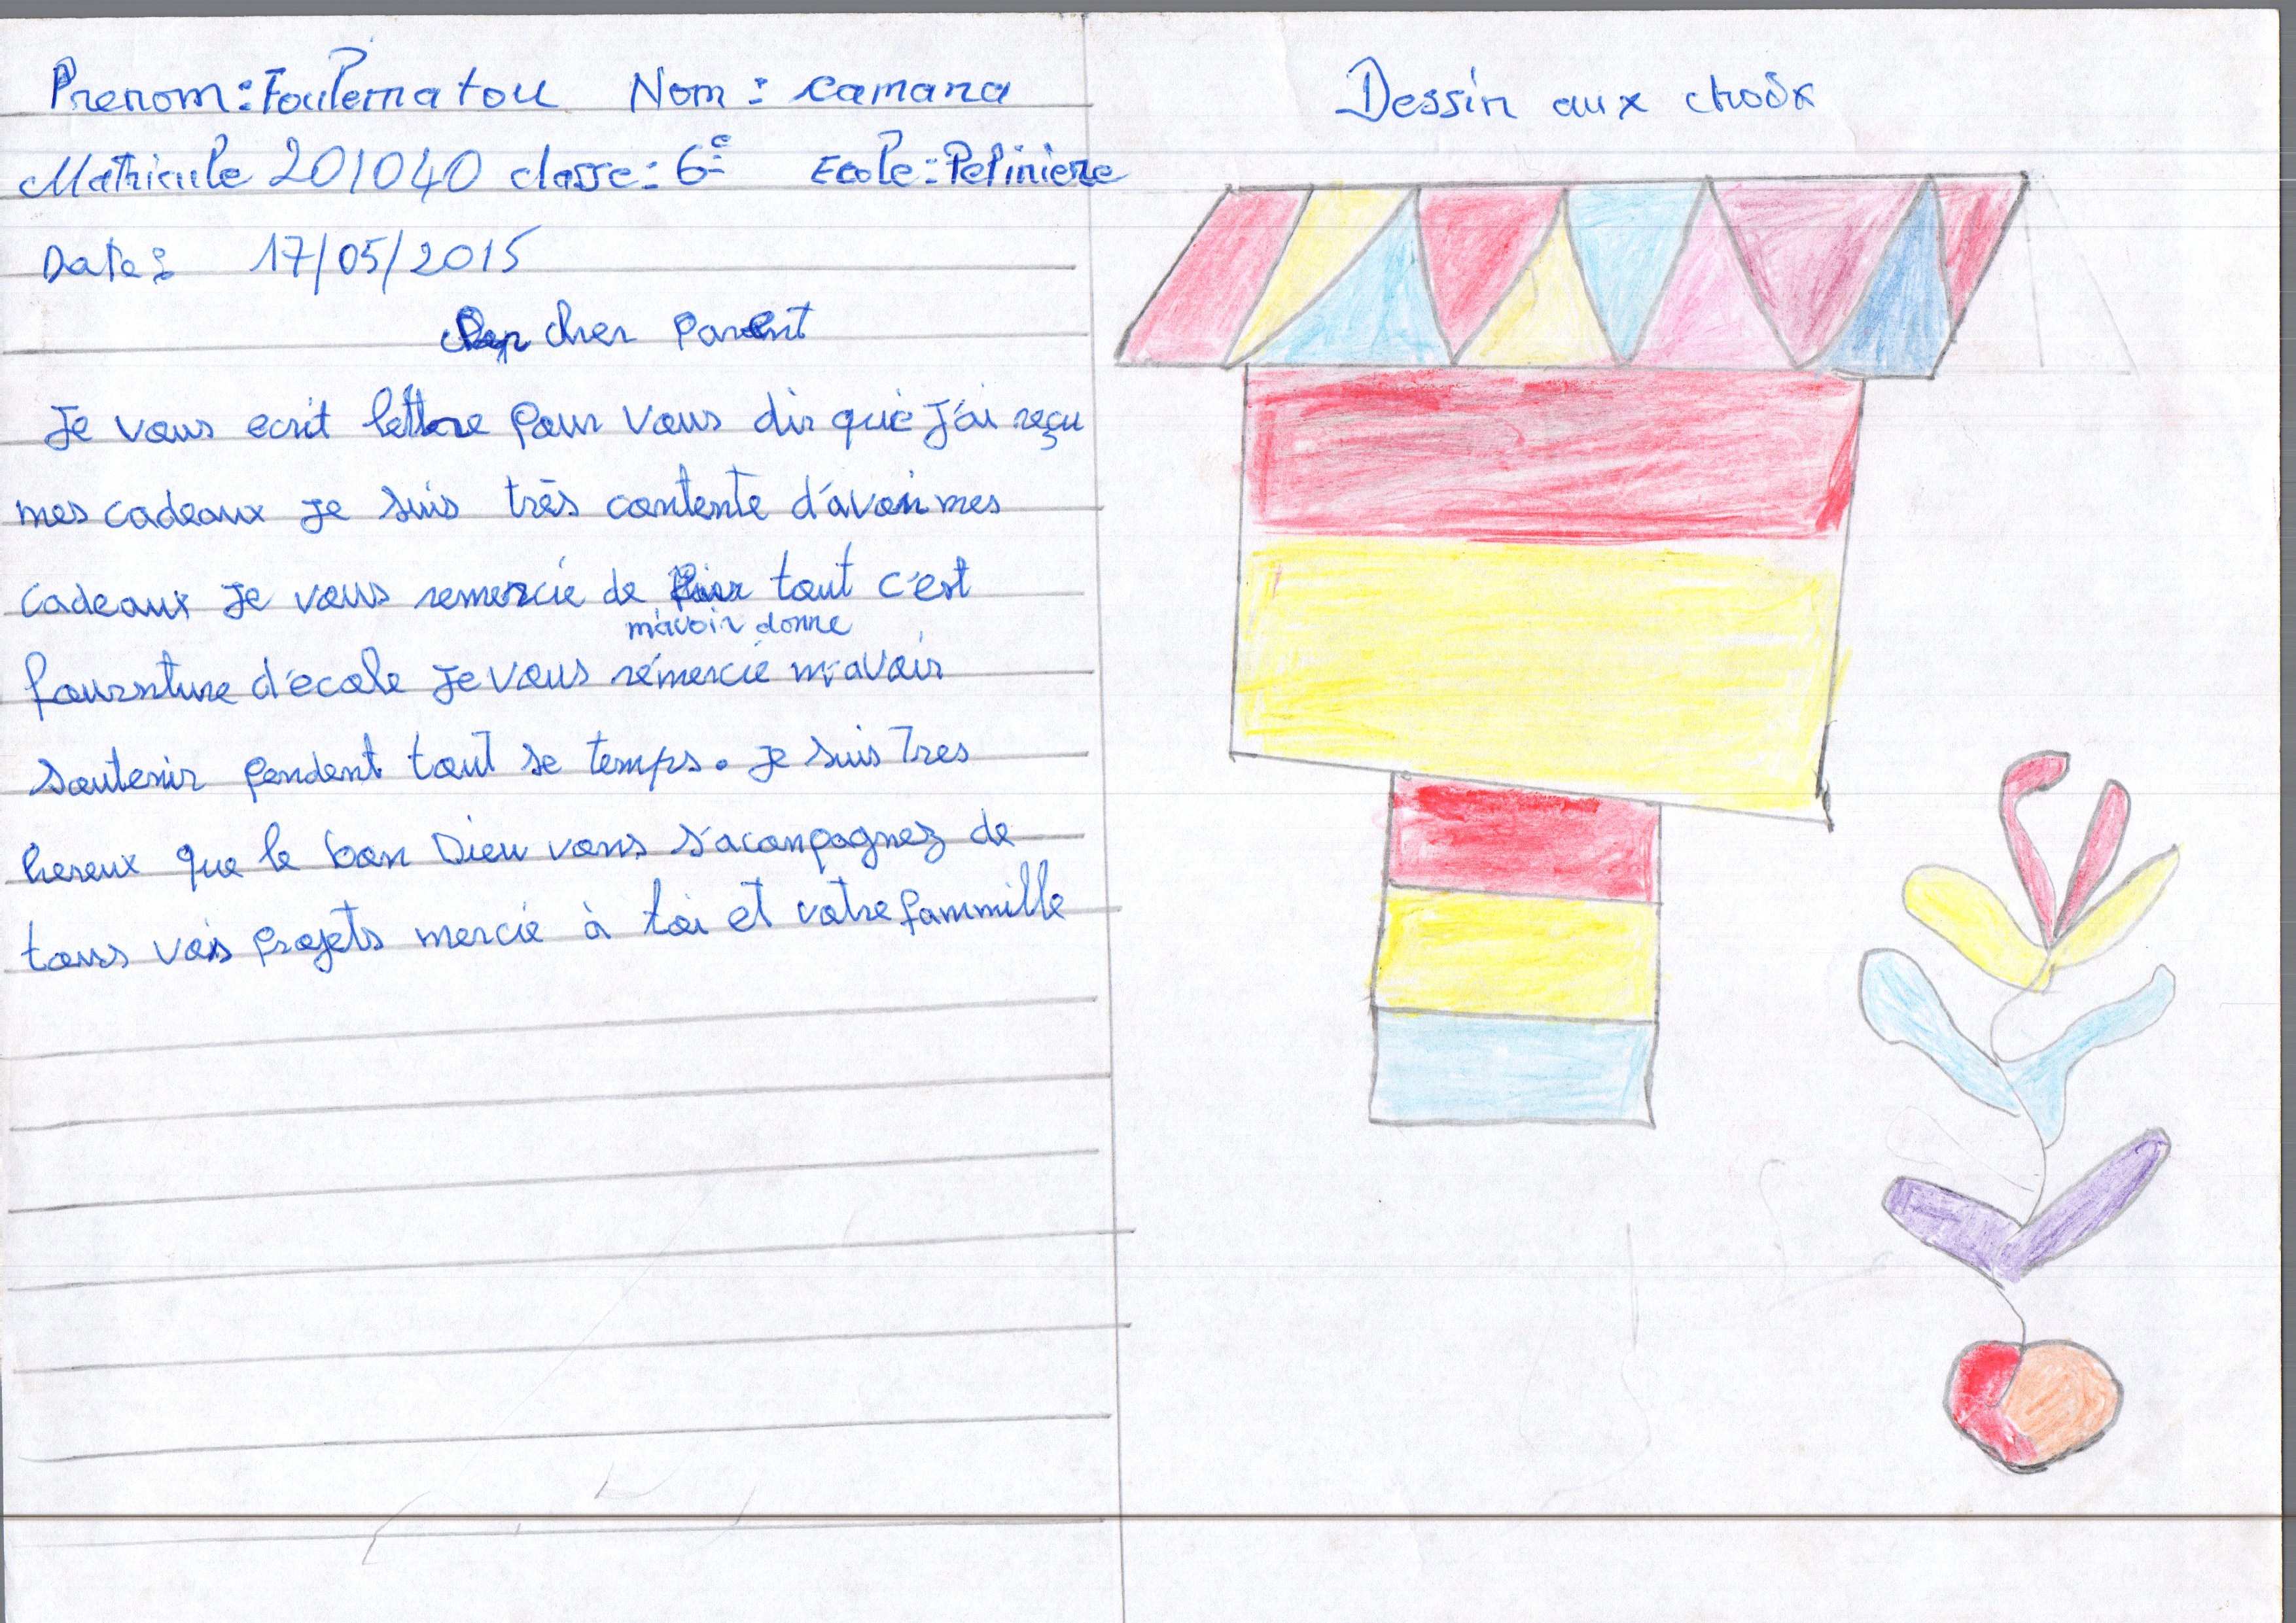 Prenom: Foulematou Nom: camara
Matricule 201040 classe: 6e Ecole: Pepiniere
Date: 17/05/2015
cher parent
Je vous ecrit lettre pour vous dir que j'ai reçu
mes cadeaux je suis très contente d'avoir mes
cadeaux je vous remercie de tout c'est
m'avoir donne
fourniture d'école je vous rémercie m'avoir
soutenir pendent tout se temps. je suis Tres
hereux que le bon Dieu vous s'acompagnez de
tous vois projets mercie à toi et votre fammille
Dessin aux choix